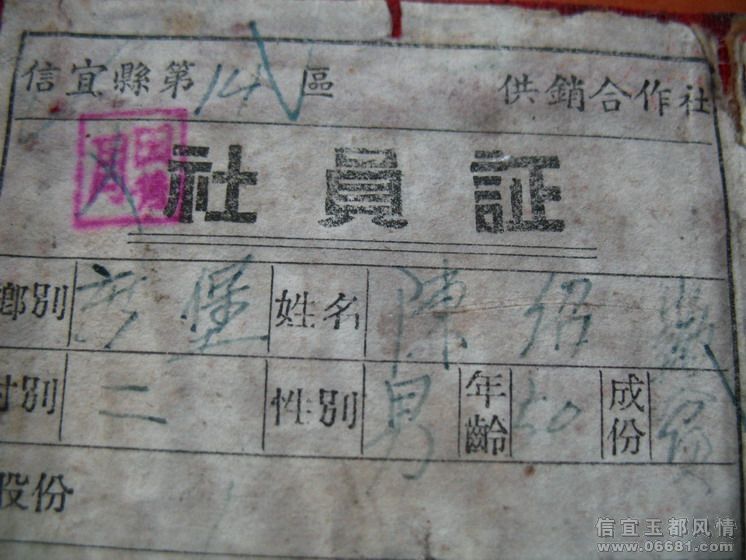 信宜縣第14區 供銷合作社
社員証
鄉別 堡 姓名 陳紹
村別 二 性別 男 年齡 50 成份
股份
信宜玉都风情
www.06681.com